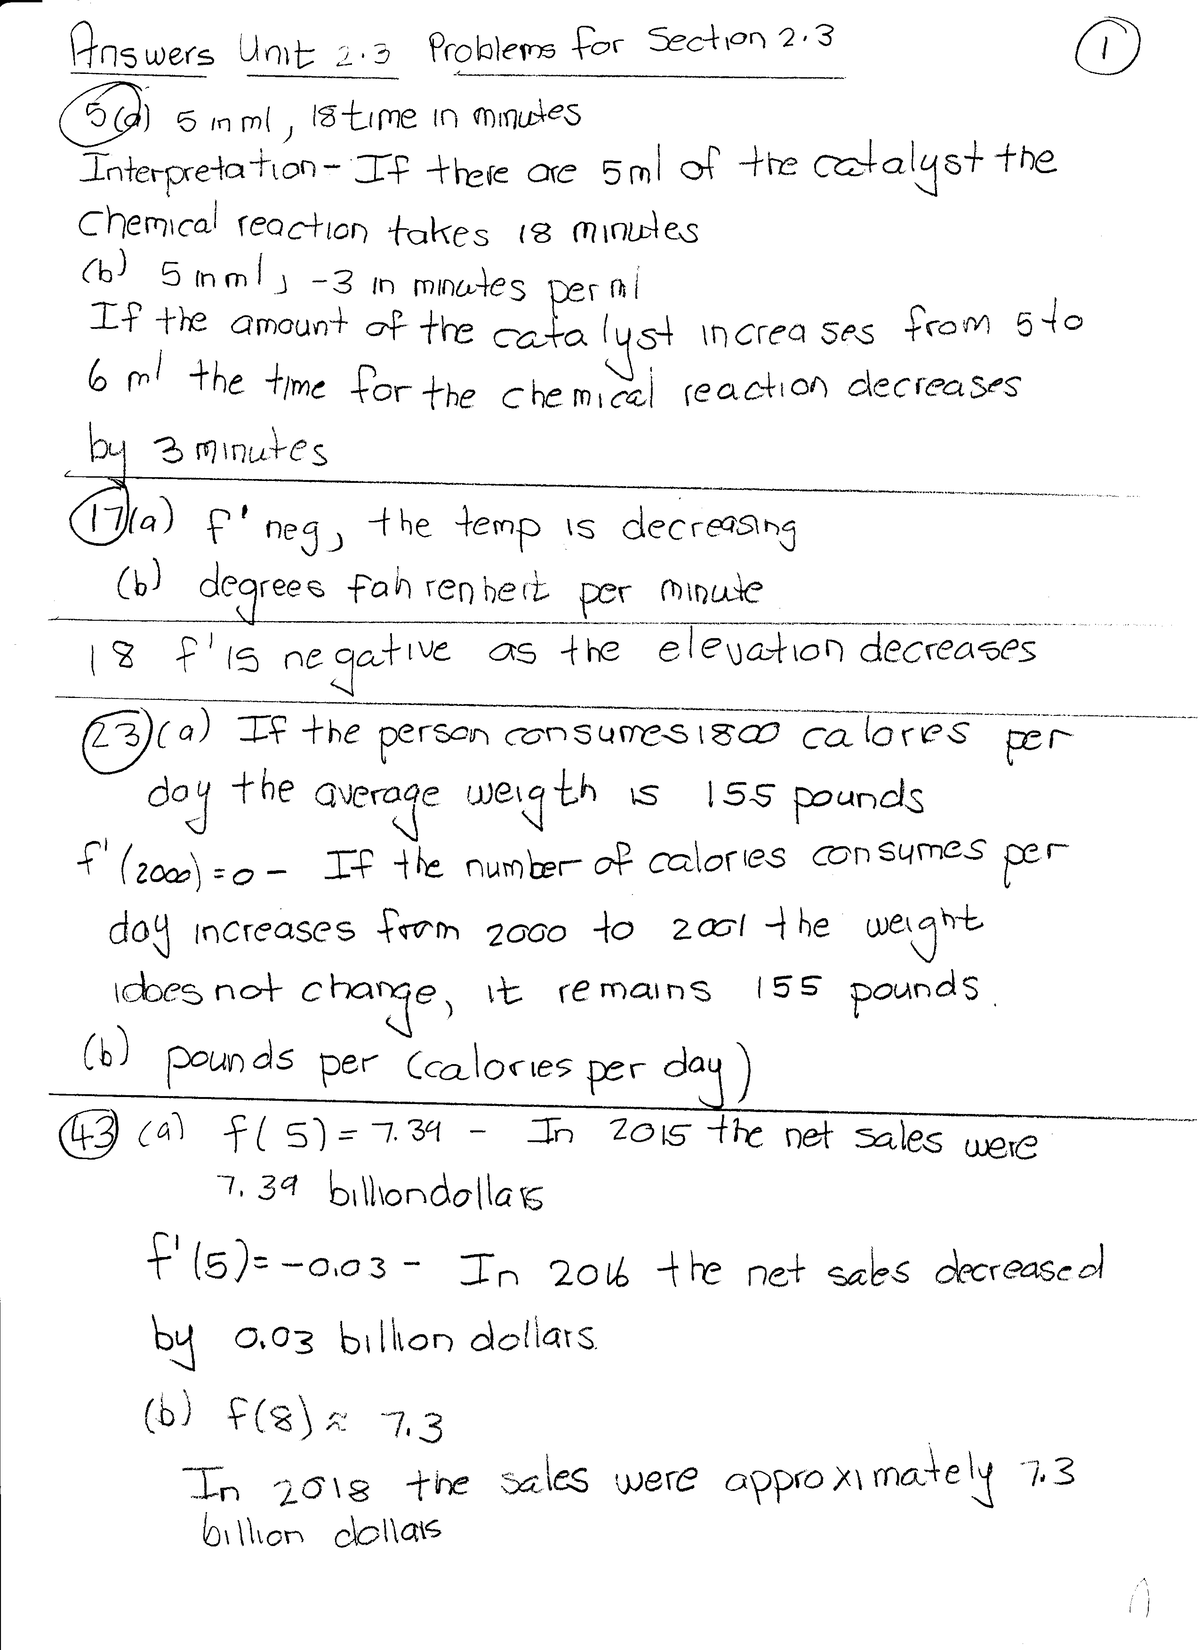 Answers Unit 2.3 Problems for Section 2.3
1
5(a) 5 in ml, 18 time in minutes
Interpretation - If there are 5ml of the catalyst the
chemical reaction takes 18 minutes
(b) 5 in ml, -3 in minutes per ml
If the amount of the catalyst increases from 5 to
6 ml the time for the chemical reaction decreases
by 3 minutes
17(a) f' neg, the temp is decreasing
(b) degrees fahrenheit per minute
18 f' is negative as the elevation decreases
23(a) If the person consumes 1800 calories per
day the average weigth is 155 pounds
f'(2000)=0 - If the number of calories consumes per
day increases from 2000 to 2001 the weight
does not change, it remains 155 pounds.
(b) pounds per (calories per day)
43 (a) f(5) = 7.39 - In 2015 the net sales were
7.39 billion dollars
f'(5)= -0.03 - In 2016 the net sales decreased
by 0.03 billion dollars.
(b) f(8) ≈ 7.3
In 2018 the sales were approximately 7.3
billion dollars